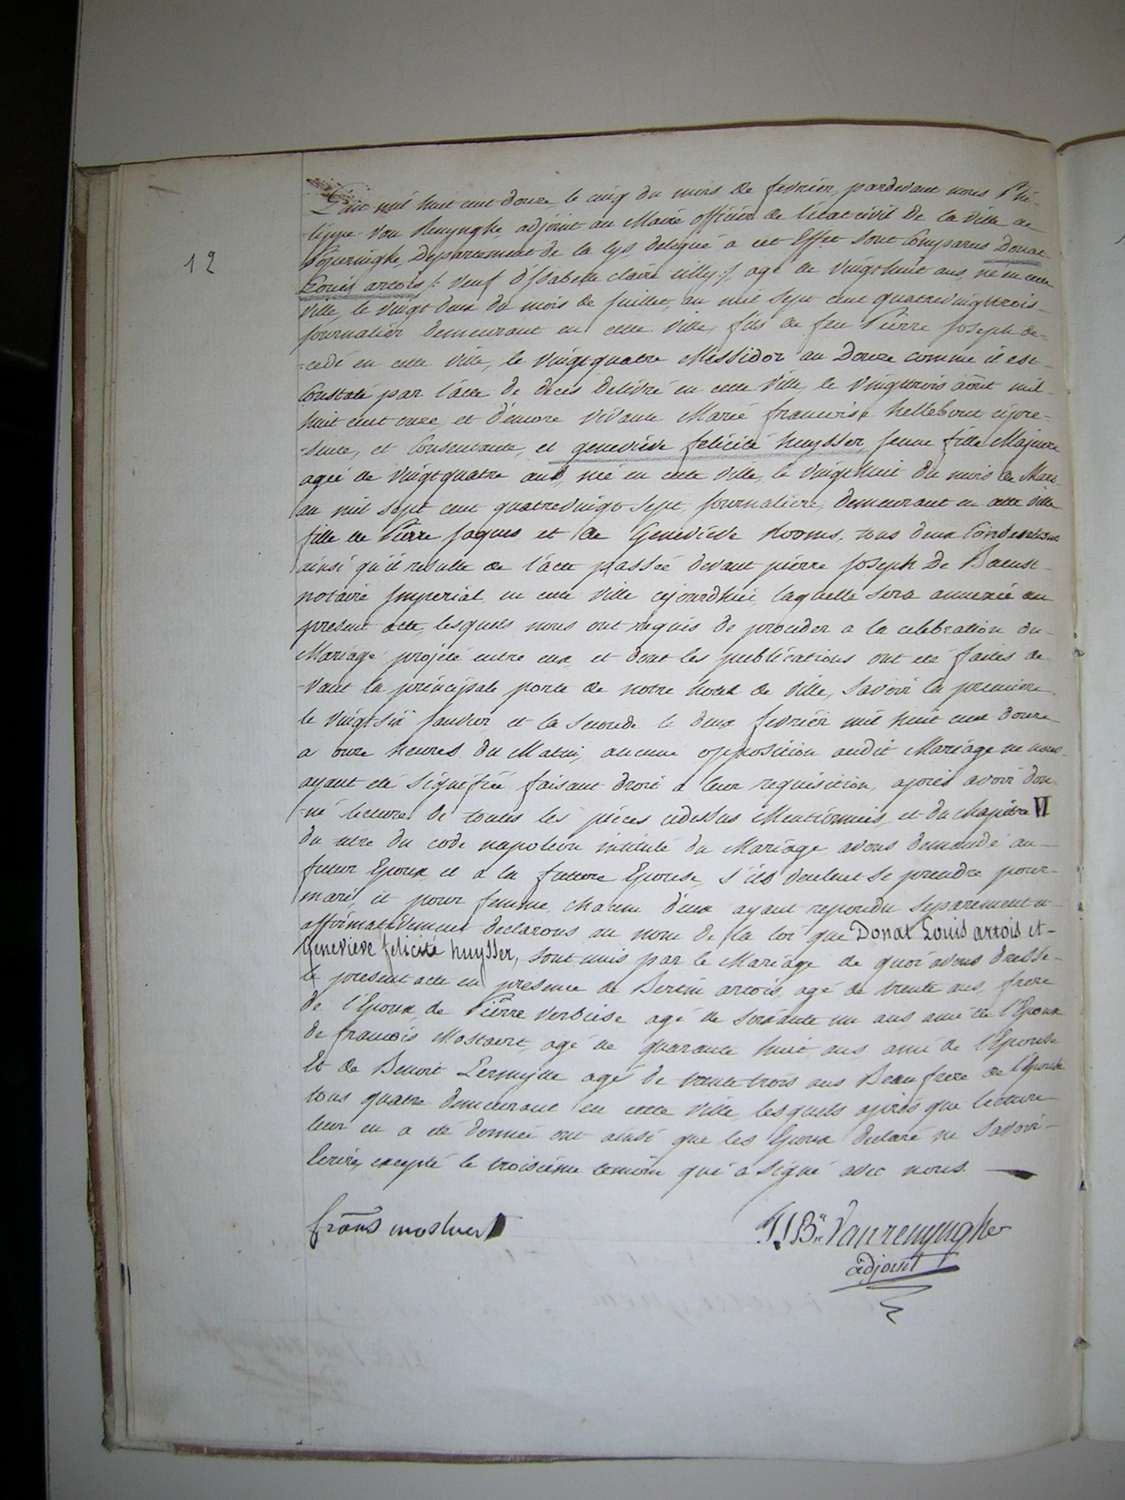 12
L'an mil huit cent douze le cinq du mois de fevrier, pardevant nous Phi-
lippe Van Renynghe, adjoint au Maire officier de l'état civil de la ville de
Poperinghe, Departement de la lys, delegué a cet Effet sont Comparus Donat
Louis arcois /: veuf d'Isabelle claire lilly :/, agé de vingthuit ans, né en cette
ville, le vingt deux du mois de juillet, an mil sept cent quatrevingttrois
journalier demeurant en cette ville, fils de feu Pierre Joseph de-
cedé en cette ville, le vingtquatre Messidor an Douze comme il est
Constaté par l'acte de deces delivré en cette ville le vingttrois aôut mil
huit cent onze, et d'encore vivante Marie francoise hellebout cipre-
sente, et Consentante, et geneviève felicité huysser, jeune fille Majeure
agée de vingtquatre ans, née en cette ville, le vingthuit du mois de Mars
an mil sept cent quatrevingt sept, journaliere, demeurant en cette ville
fille de Pierre Jaques et de Geneviève Rooms, tous deux Consentans
ainsi qu'il resulte de l'acte passée devant pierre Joseph De Baenst
notaire Imperial en cette ville cejourdhui laquelle sera annexée au
present acte, lesquels nous ont requis de proceder a la celebration du
Mariage projeté entre eux, et dont les publications ont eté faites de-
vant la principale porte de notre hotel de ville, Savoir la premiere
le vingtsix janvier et la seconde le deux fevrier mil huit cent douze
a onze heures du Matin, aucune opposition audit Mariage ne nous
ayant eté signifiée, faisant droit a leur requisition, apres avoir don-
né lecture de toutes les pieces cidessus Mentionnées, et du chapitre VI
du titre du code napoleon intitulé du Mariage avons demandé au
futur Epoux et a la future Epouse, s'ils veulent se prendre pour
mari, et pour femme, chacun d'eux ayant repondu separement
affirmativement declarons au nom de la loi que Donat Louis arcois et
Geneviève felicité huysser, sont unis par le Mariage de quoi avons dressé
le present acte en presence de Bertin arcois, agé de trente ans, frere
de l'Epoux, de Pierre Verbiese agé de soixante un ans, ami de l'Epoux
de francois Mostaert, agé de quarante huit ans ami de l'Epouse
Et de Benoit Lermytte agé de trente trois ans Beaufrere de l'Epouse
tous quatre demeurant en cette ville lesquels après que lecture
leur en a eté donnée ont ainsi que les Epoux declaré ne savoir
Ecrire, excepté le troisième temoin qui a signé avec nous.
frans mostaert
P J Bn Vanrenynghe
adjoint